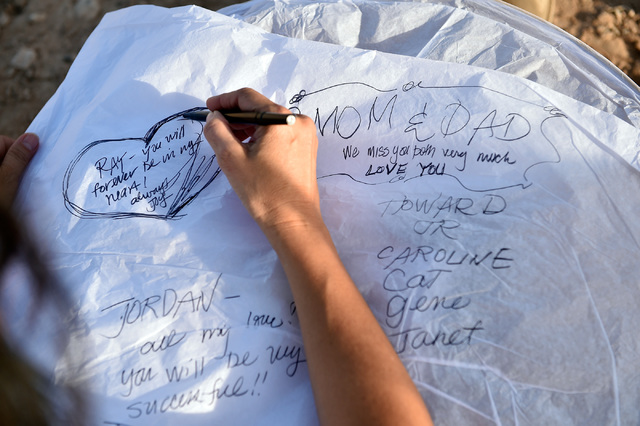 RAY - you will
forever be in my
heart!
always
Joy
MOM & DAD
We miss you both very much
LOVE YOU
HOWARD
JR
CAROLINE
Cat
Gene
Janet
JORDAN -
all my love!
you will be my
successful!!